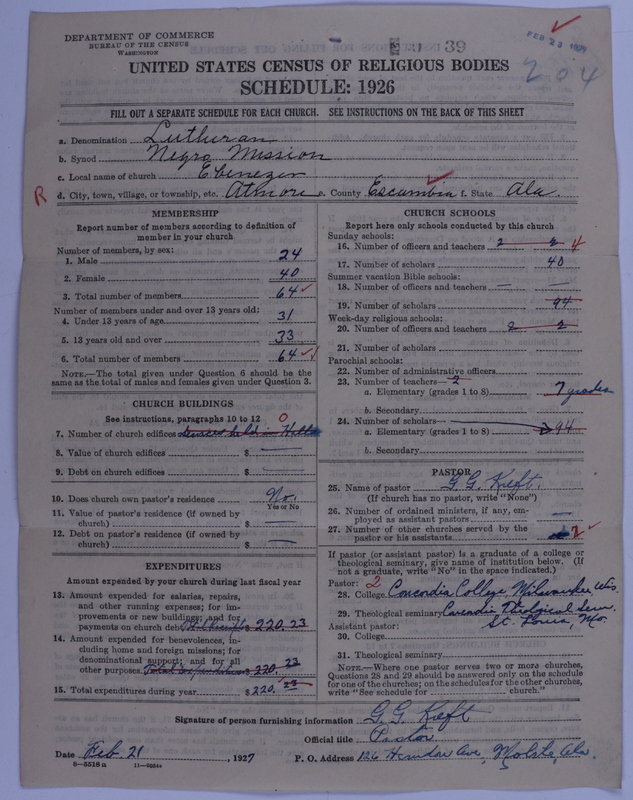 DEPARTMENT OF COMMERCE
BUREAU OF THE CENSUS
WASHINGTON
39
FEB 23 1927
204
UNITED STATES CENSUS OF RELIGIOUS BODIES
SCHEDULE: 1926
FILL OUT A SEPARATE SCHEDULE FOR EACH CHURCH. SEE INSTRUCTIONS ON THE BACK OF THIS SHEET
a. Denomination Lutheran
b. Synod Negro Mission
c. Local name of church Ebenezer
R d. City, town, village, or township, etc. Atmore e. County Escambia f. State Ala.
MEMBERSHIP
Report number of members according to definition of
member in your church
Number of members, by sex:
1. Male 24
2. Female 40
3. Total number of members 64
Number of members under and over 13 years old:
4. Under 13 years of age 31
5. 13 years old and over 33
6. Total number of members 64
NOTE.—The total given under Question 6 should be
same as the total of males and females given under Question 3.
CHURCH BUILDINGS
See instructions, paragraphs 10 to 12 0
7. Number of church edifices Services held in Halls
8. Value of church edifices $ —
9. Debt on church edifices $ —
10. Does church own pastor's residence No.
Yes or No
11. Value of pastor's residence (if owned by
church) $ —
12. Debt on pastor's residence (if owned by
church) $ —
EXPENDITURES
Amount expended by your church during last fiscal year
13. Amount expended for salaries, repairs,
and other running expenses; for im-
provements or new buildings; and for
payments on church debt $ 220.23
14. Amount expended for benevolences, in-
cluding home and foreign missions; for
denominational support; and for all
other purposes Total Expenditures 220.23
15. Total expenditures during year $ 220.23
CHURCH SCHOOLS
Report here only schools conducted by this church
Sunday schools:
16. Number of officers and teachers 2 2 4
17. Number of scholars 40
Summer vacation Bible schools:
18. Number of officers and teachers — —
19. Number of scholars 94
Week-day religious schools:
20. Number of officers and teachers 2 2
21. Number of scholars
Parochial schools:
22. Number of administrative officers
23. Number of teachers— 2
a. Elementary (grades 1 to 8) 7 grades
b. Secondary
24. Number of scholars—
a. Elementary (grades 1 to 8) 94
b. Secondary
PASTOR
25. Name of pastor G. G. Kreft
(If church has no pastor, write "None")
26. Number of ordained ministers, if any, em-
ployed as assistant pastors —
27. Number of other churches served by the
pastor or his assistants 2
If pastor (or assistant pastor) is a graduate of a college or
theological seminary, give name of institution below. (If
not a graduate, write "No" in the space indicated.)
Pastor: 2
28. College Concordia College, Milwaukee, Wis.
29. Theological seminary Concordia Theological Sem.
St. Louis, Mo.
Assistant pastor:
30. College
31. Theological seminary
NOTE.—Where one pastor serves two or more churches,
Questions 28 and 29 should be answered only on the schedule
for one of the churches; on the schedules for the other churches,
write "See schedule for church."
Signature of person furnishing information G. G. Kreft
Official title Pastor
Date Feb. 21, 1927 P. O. Address 126 Ave, Mobile, Ala.
8—5518 a 11—9054